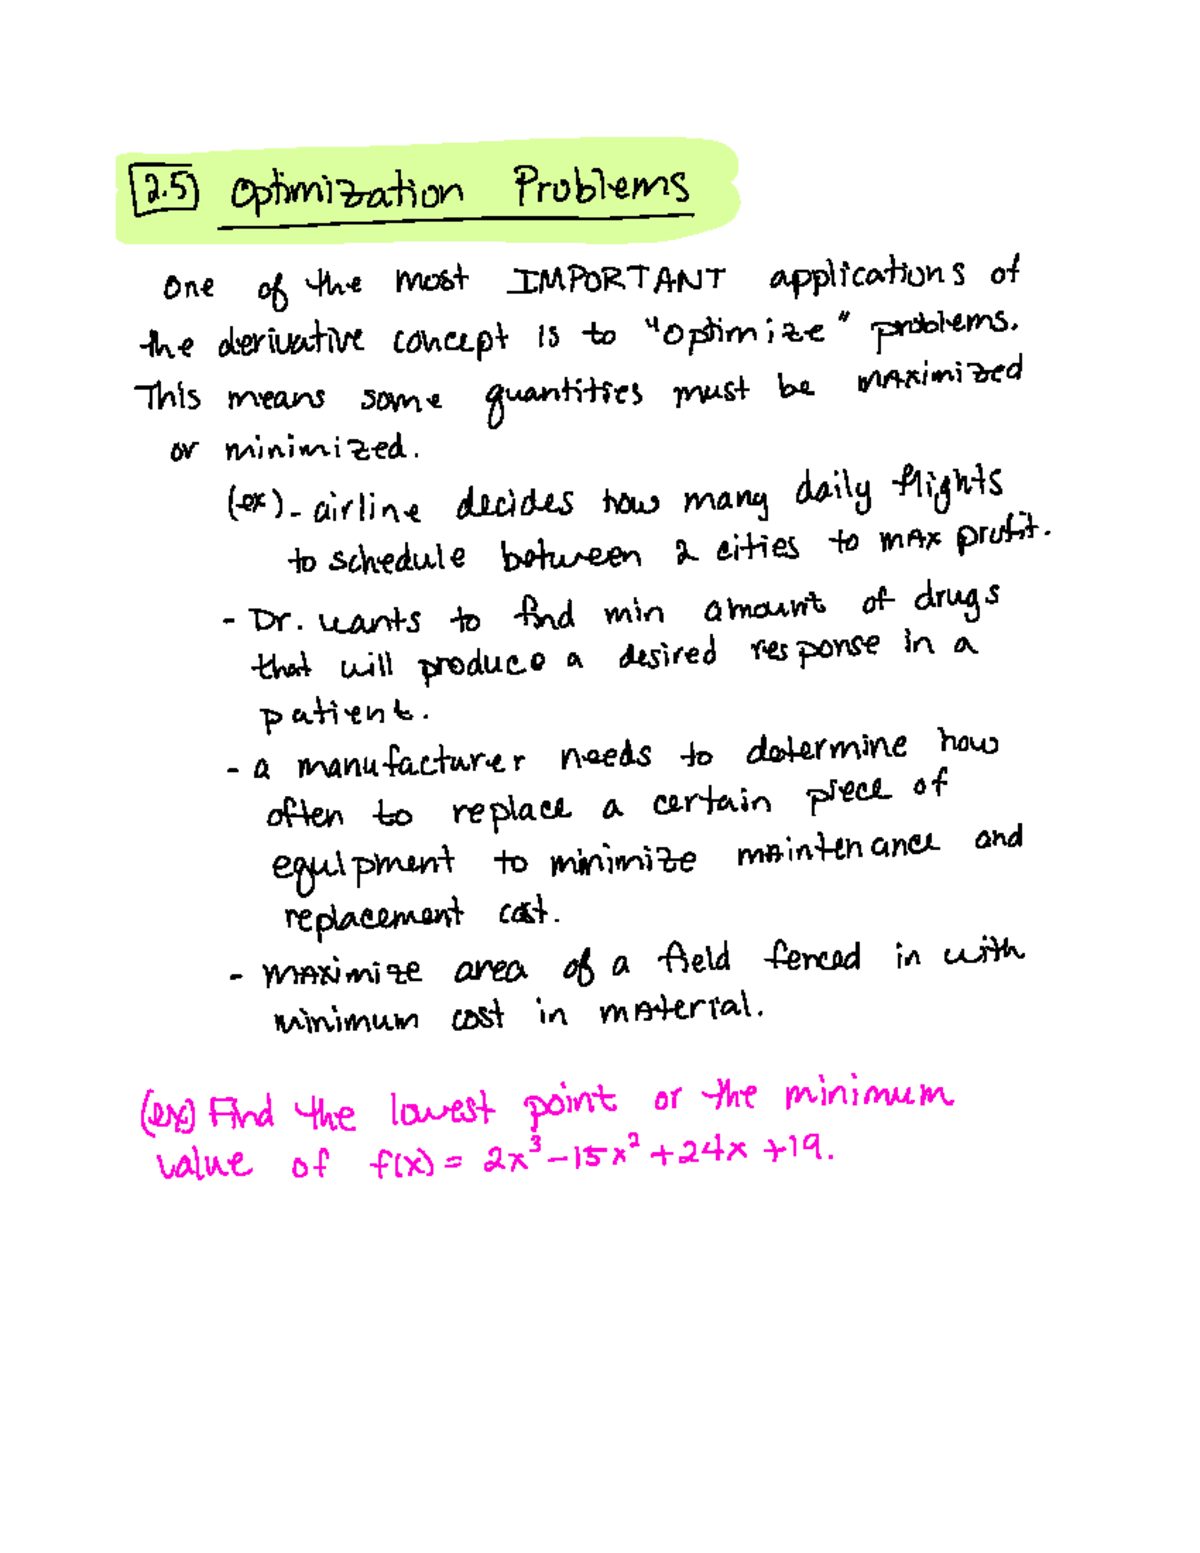 2.5 Optimization Problems
One of the most IMPORTANT applications of
the derivative concept is to "optimize" problems.
This means some quantities must be maximized
or minimized.
(ex)- airline decides how many daily flights
to schedule between 2 cities to max profit.
- Dr. wants to find min amount of drugs
that will produce a desired response in a
patient.
- a manufacturer needs to determine how
often to replace a certain piece of
equipment to minimize maintenance and
replacement cost.
- maximize area of a field fenced in with
minimum cost in material.
(ex) Find the lowest point or the minimum
value of f(x) = 2x³-15x²+24x+19.